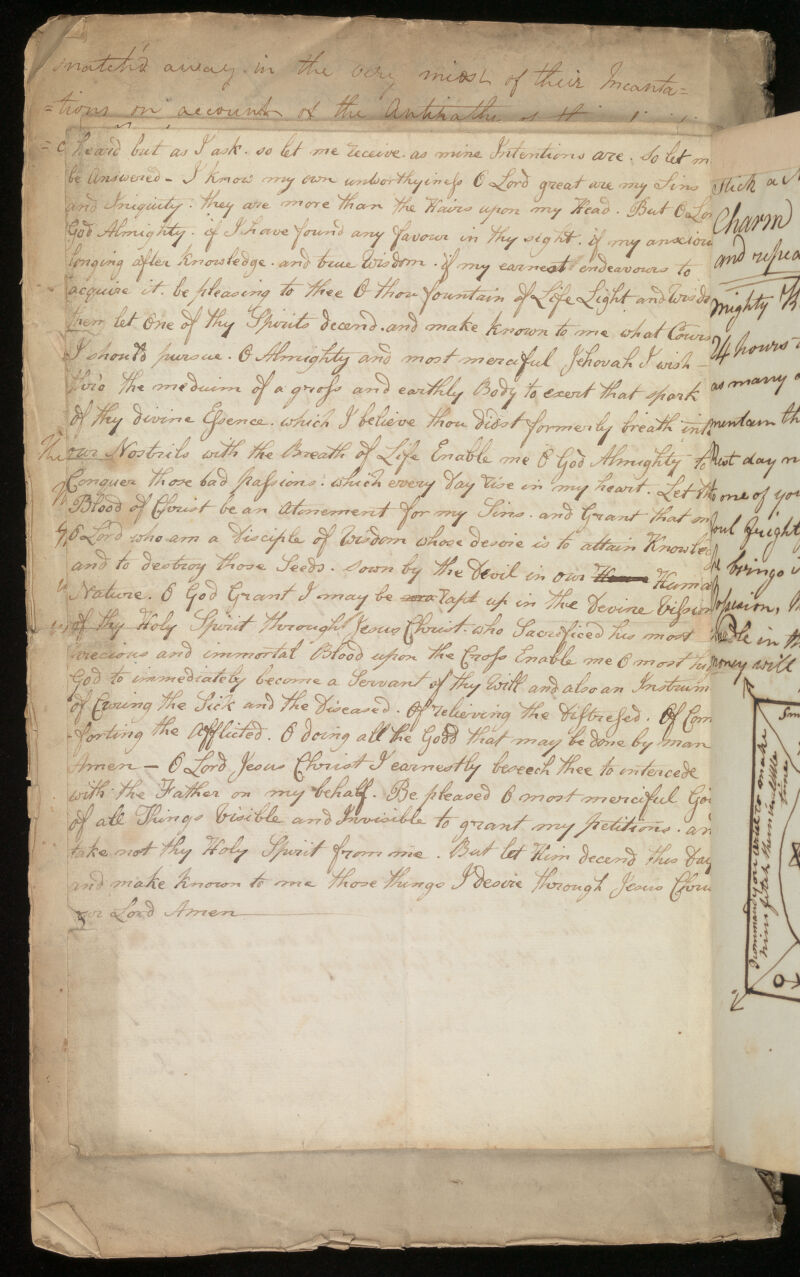 snatch'd away in the very midst of their Incanta=
=tions on account of the Antipathe
heard but as I ask. so let me receive. as mine Intentions are. So let m
be Answered - I know my own unworthyiness O Lord great are my Sins
and Iniquity. they are more than the Hairs upon my Head. But O Lor
God Almighty. if I have found any favour in thy sight. if my anxiou
longing after knowledge. and true Wisdom. if my earnest endeavours to
acquire it. be pleasing to thee O thou fountain of Life Light and Wisdo
then let One of thy Spirits decend. and make known to me what Cours
I should pursue. O Almighty and most merciful Jehovah I wish -
thro the meduim of a gross and earthly Body to exert that spark
of thy divine Essence. which I believe thou didst formerly breath int
our Nostrils with the Breath of Life Enable me O God Almighty to
Conquer those bad passions. which every day rise in my heart. Let th
Blood of Christ be an Atonement for my Sins. and Grant that m
O Lord who am a Disciple of Wisdom whose desire is to attain Knowled
and to destroy those Seeds. sown by the Devil in our Huma
Nature. O God Grant I may be rapt up in the Devine Vission
of thy Holy Spirit through Jesus Christ. who Sacrificed his most
precious and immortal Blood upon the Cross Enable me O most hig
God to immediately become a Servant of thy Will and also an Instrum
of Curing the Sick and the Diseased. Of relieving the Distressed. Of Com
-forting the Afflicted. O doing all the Good that may be done by man
Amen - O Lord Jesus Christ I earnestly beseech thee to intercede
with the Father on my behalf. Be pleased O most merciful God
of all Things Visible and Invisible to grant my petitions. an
take not thy Holy Spirit from me. But let Him decend this Day
and make known to me those things I desire through Jesus Chris
our Lord Amen
The
stick a
Charm
and repea
mighty
24 hours
as many
mentain th
first day n
one of you
soul fright
brings
in th
money will
I command you
him fetch them in little
time